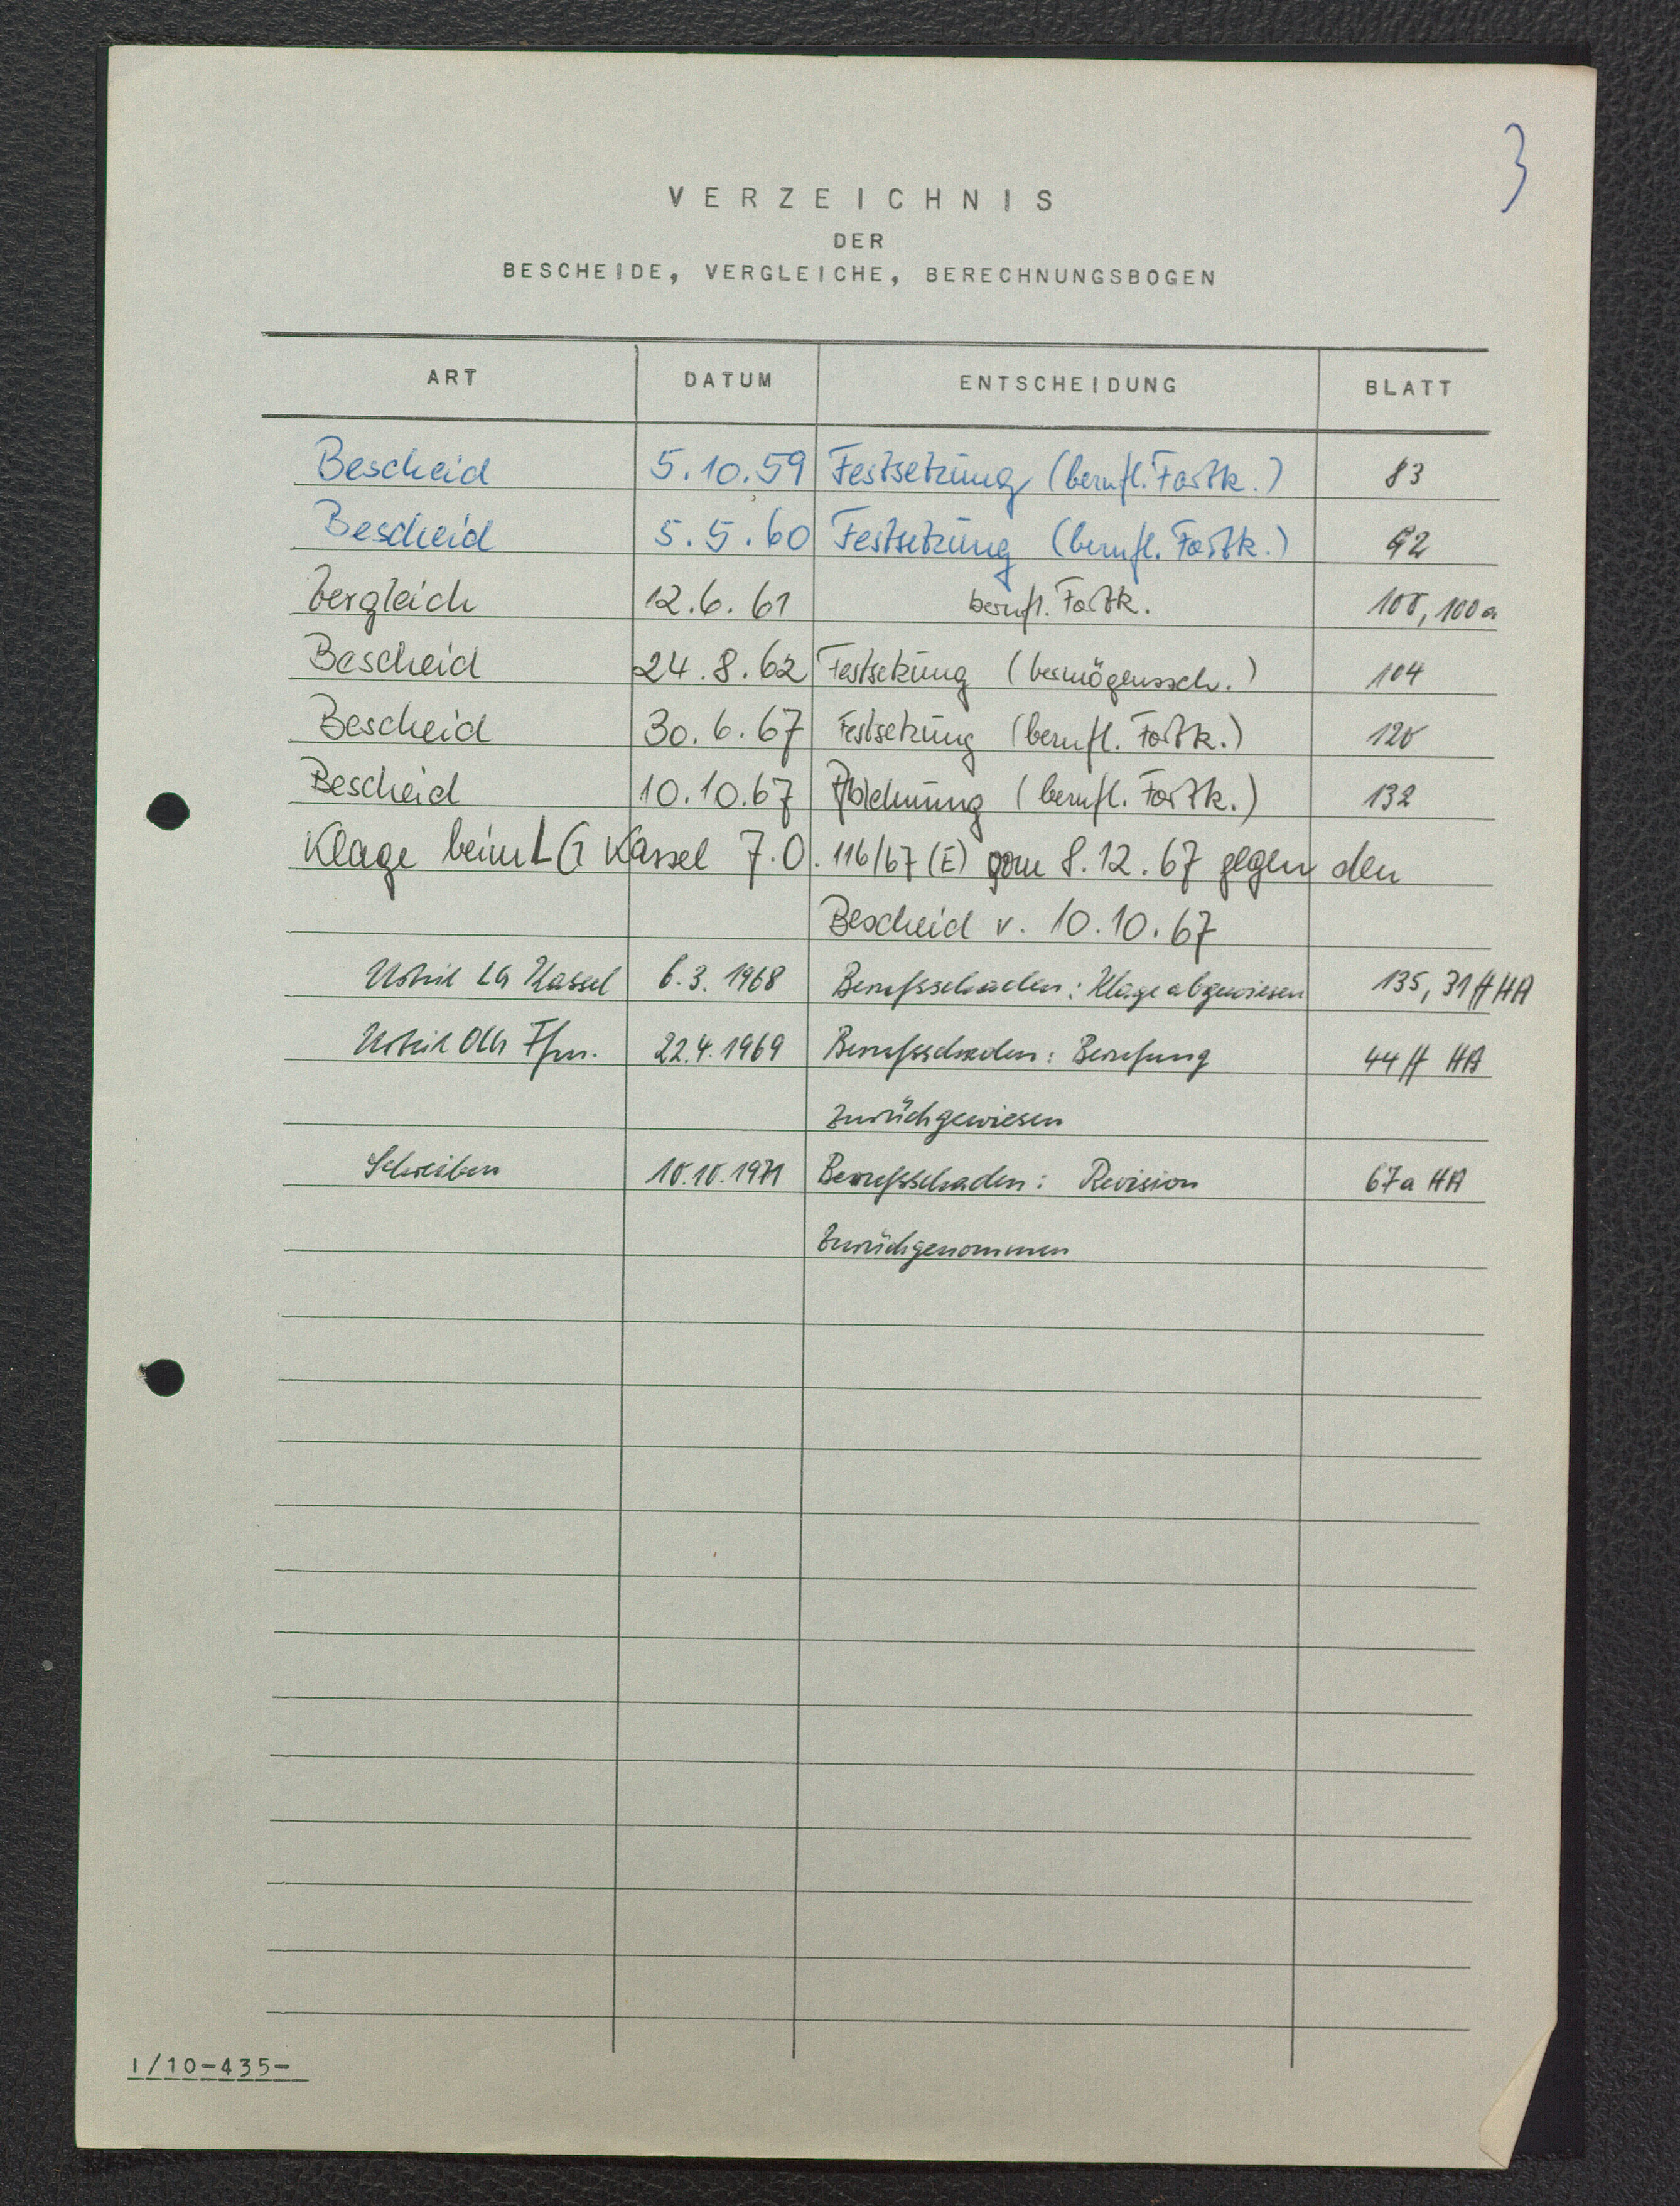 3
VERZEICHNIS
DER
BESCHEIDE, VERGLEICHE, BERECHNUNGSBOGEN
ART DATUM ENTSCHEIDUNG BLATT
Bescheid 5.10.59 Festsetzung (berufl. Fortk.) 83
Bescheid 5.5.60 Festsetzung (berufl. Fortk.) 92
Vergleich 12.6.61 berufl. Fortk. 100, 100a
Bescheid 24.8.62 Festsetzung (Vermögenssch.) 104
Bescheid 30.6.67 Festsetzung (berufl. Fortk.) 120
Bescheid 10.10.67 Ablehnung (berufl. Fortk.) 132
Klage beim LG Kassel 7.O. 116/67 (E) vom 8.12.67 gegen den
Bescheid v. 10.10.67
Urteil LG Kassel 6.3.1968 Berufsschaden: Klage abgewiesen 135, 31 ff HA
Urteil OLG Ffm. 22.4.1969 Berufsschaden: Berufung 44 ff HA
zurückgewiesen
Schreiben 10.10.1971 Berufsschaden: Revision 67a HA
zurückgenommen
I/10-435-